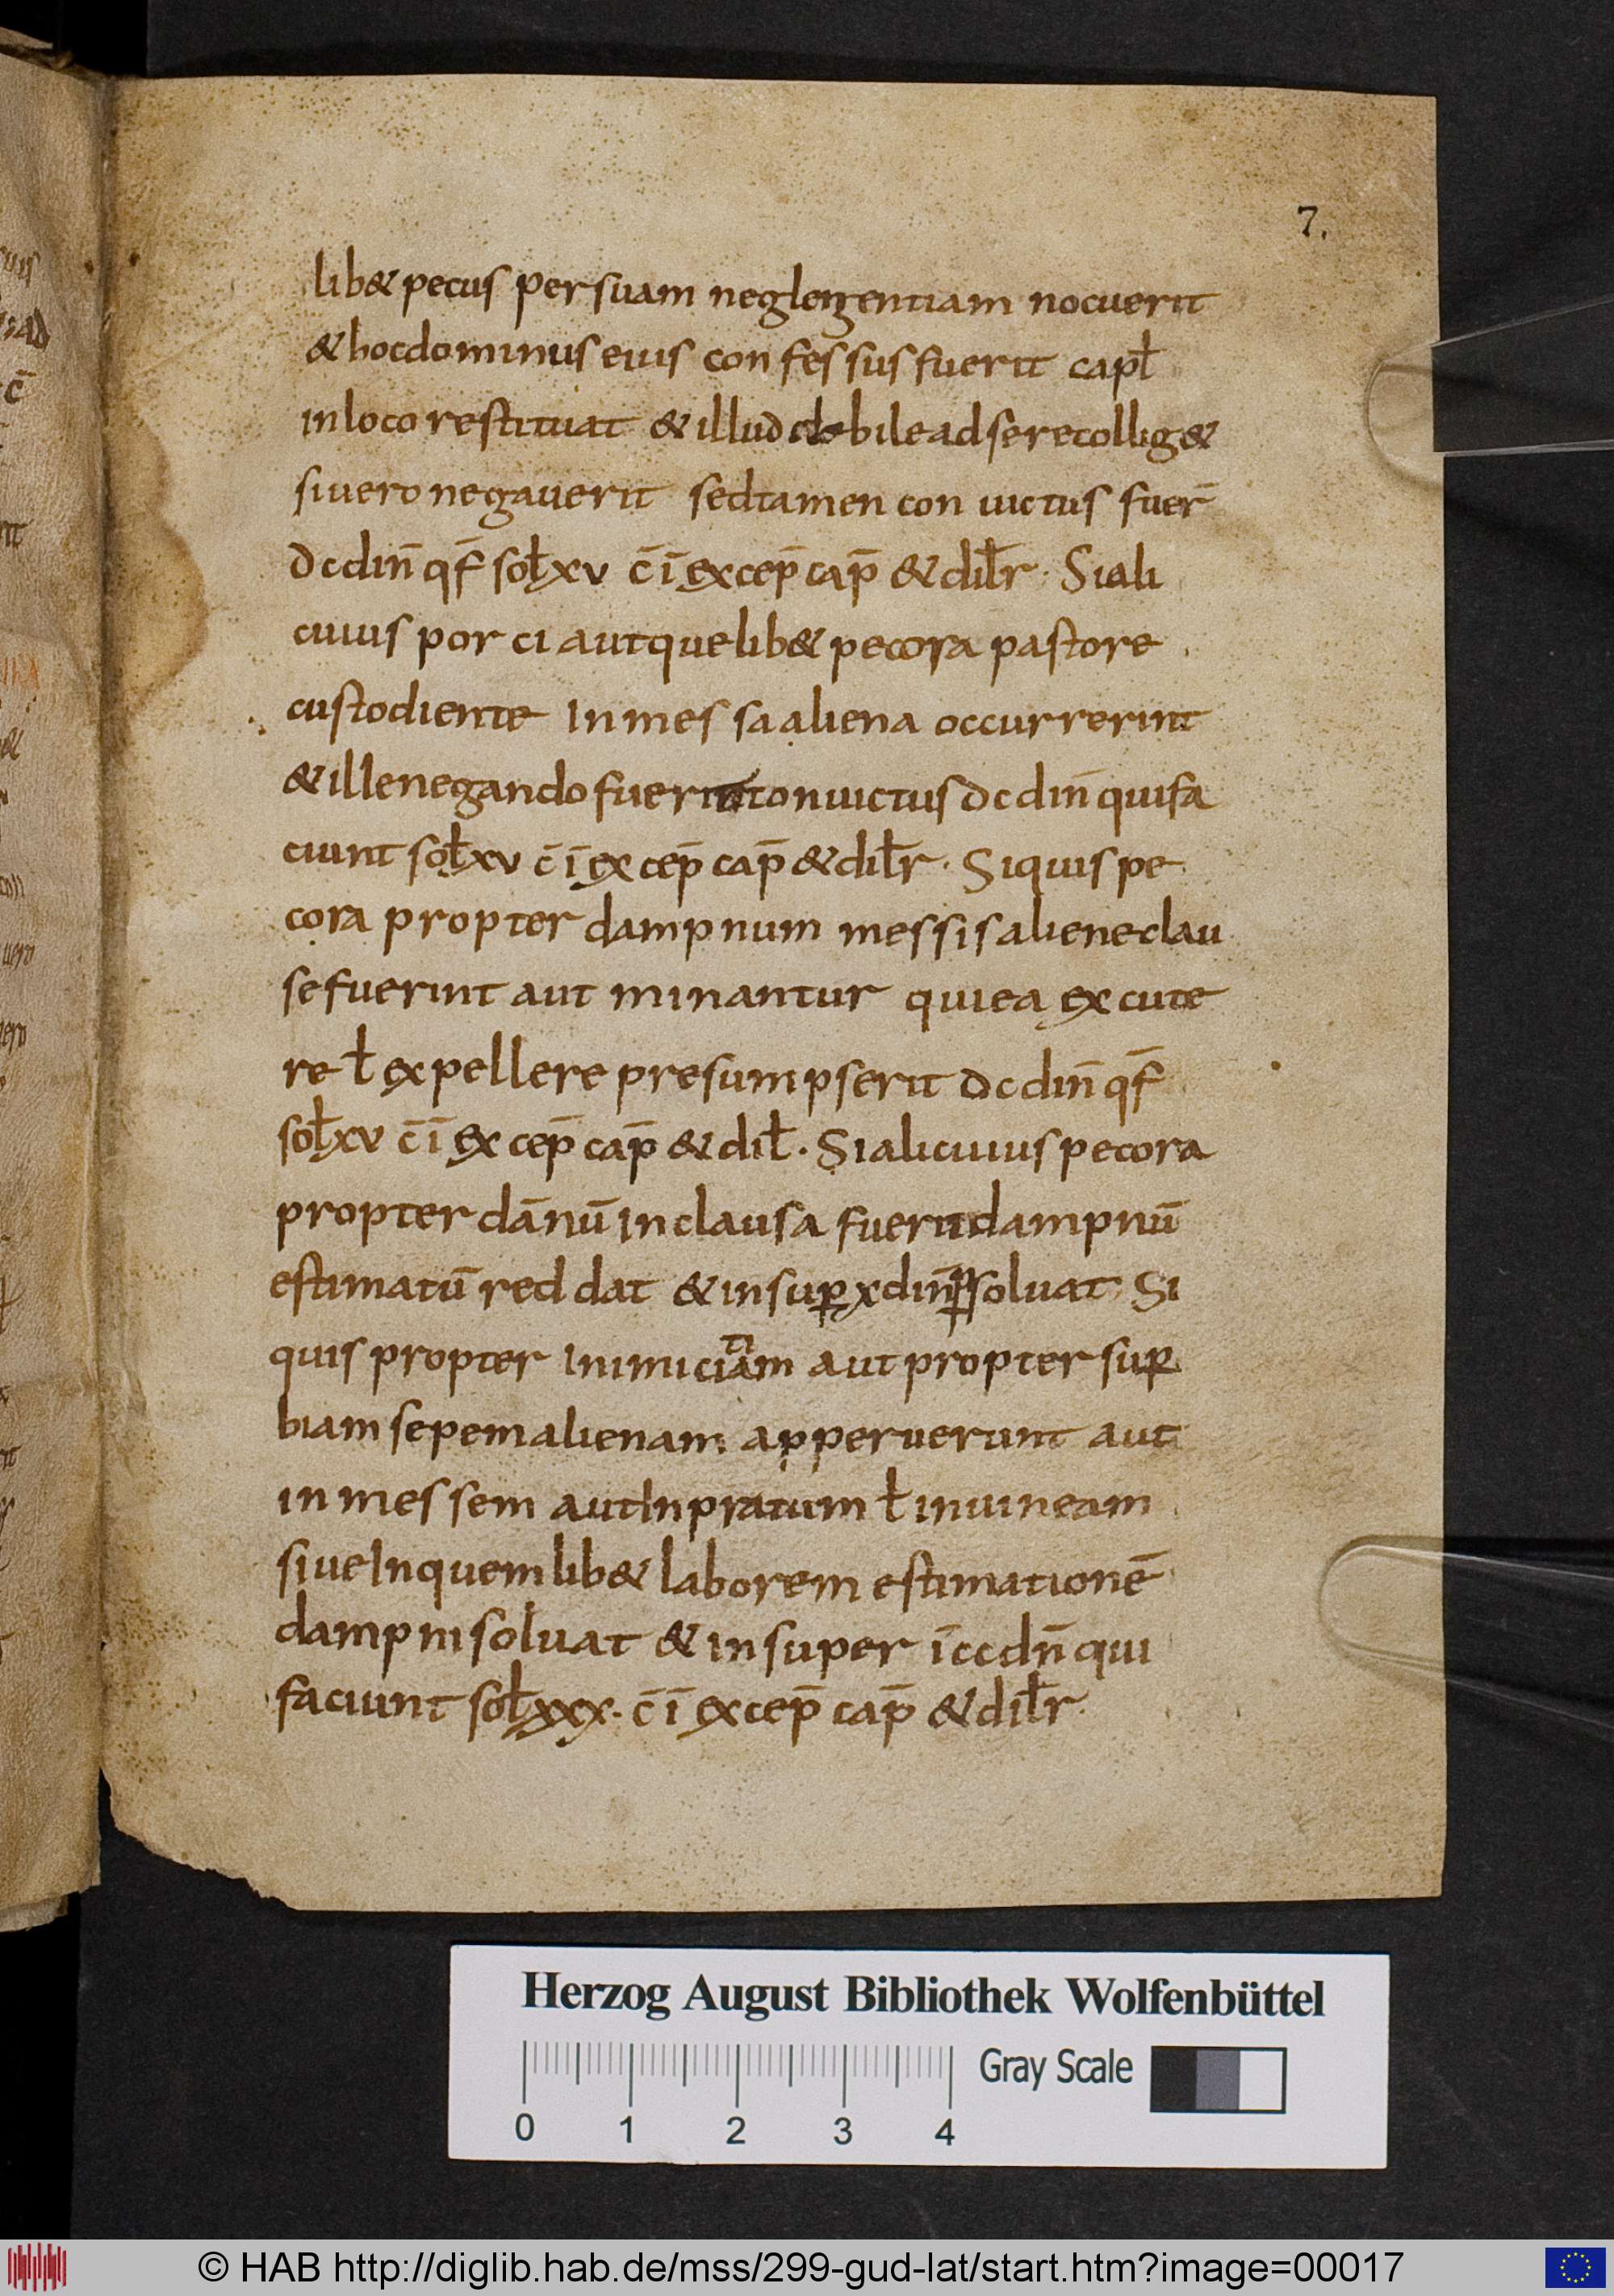 7.
lib& pecus per suam neglegentiam nocuerit
& hocdominus eius con fessus fuerit capł
inloco restituat & illud debile ad se recollig&
siuero negauerit sed tamen con uictus fuer̄
dc din̄ qf̄ soł xv c̄ ī excep̄ cap̄ & diłr · Siali
cuius por ci autquelib& pecora pastore
custodiente In mes sa aliena occurrerint
& illenegando fuerit conuictus dc din̄ quifa
ciunt soł xv c̄ ī ex cep̄ cap̄ & diłr · Siquis pe
cora propter damp num messis aliene clau
se fuerint aut minantur qui ea ex cute
re ł expellere presumpserit dc din̄ qf̄
soł xv c̄ ī ex cep̄ cap̄ & dił · Si alicuius pecora
propter dānū in clausa fuerit dampnū
estimatū red dat & insuꝑ x din̄ ꝑsoluat Si
quis propter Inimicitiam aut propter suꝑ
biam sepem alienam apperuerunt aut
in mes sem aut In pratum ł inuineam
siue In quemlib& laborem estimationē
damp ni soluat & in super īcc dn̄ qui
faciunt soł xxx · c̄ ī excep̄ cap̄ & diłr
Herzog August Bibliothek Wolfenbüttel
Gray Scale
0 1 2 3 4
© HAB http://diglib.hab.de/mss/299-gud-lat/start.htm?image=00017